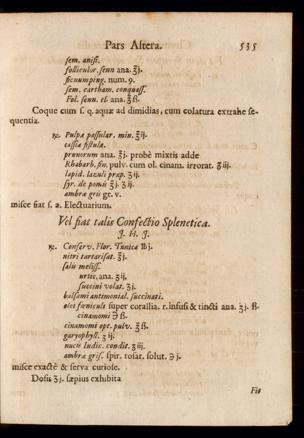 Pars Altera. 535
sem. anisi.
follicular. senn ana. ℥j.
ficuum ping. num. 9.
sem. cartham. conquass.
Fol. senn. el. ana. ℥ß.
Coque cum s. q. aquæ ad dimidias, cum colatura extrahe se-
quentia.
℞. Pulpæ passular. min. ℥ij.
cassiæ fistulæ.
prunorum ana. ℥j. probè mixtis adde
Rhabarb. fin. pulv. cum ol. cinam. irrorat. ʒiij.
lapid. lazuli præp. ʒij.
syr. de pomis ℥j. ʒij.
ambræ gris gr. v.
misce fiat s. a. Electuarium.
Vel fiat talis Confectio Splenetica.
J. H. J.
℞. Conserv. Flor. Tunicæ ℔j.
nitri tartarisat. ℥j.
salis meliss.
urtic. ana. ʒij.
succini volat. ʒj.
balsami antimonial. succinati.
olei fœniculi super corallia. r. infusi & tincti ana. ʒj. ß.
cinamomi ℈ß.
cinamomi opt. pulv. ℥ß.
garyophyll. ʒij.
nucis Indic. condit. ʒiij.
ambræ gris. spir. rosar. solut. ℈j.
misce exactè & serva curiose.
Dosis ʒj. sæpius exhibita
Fit